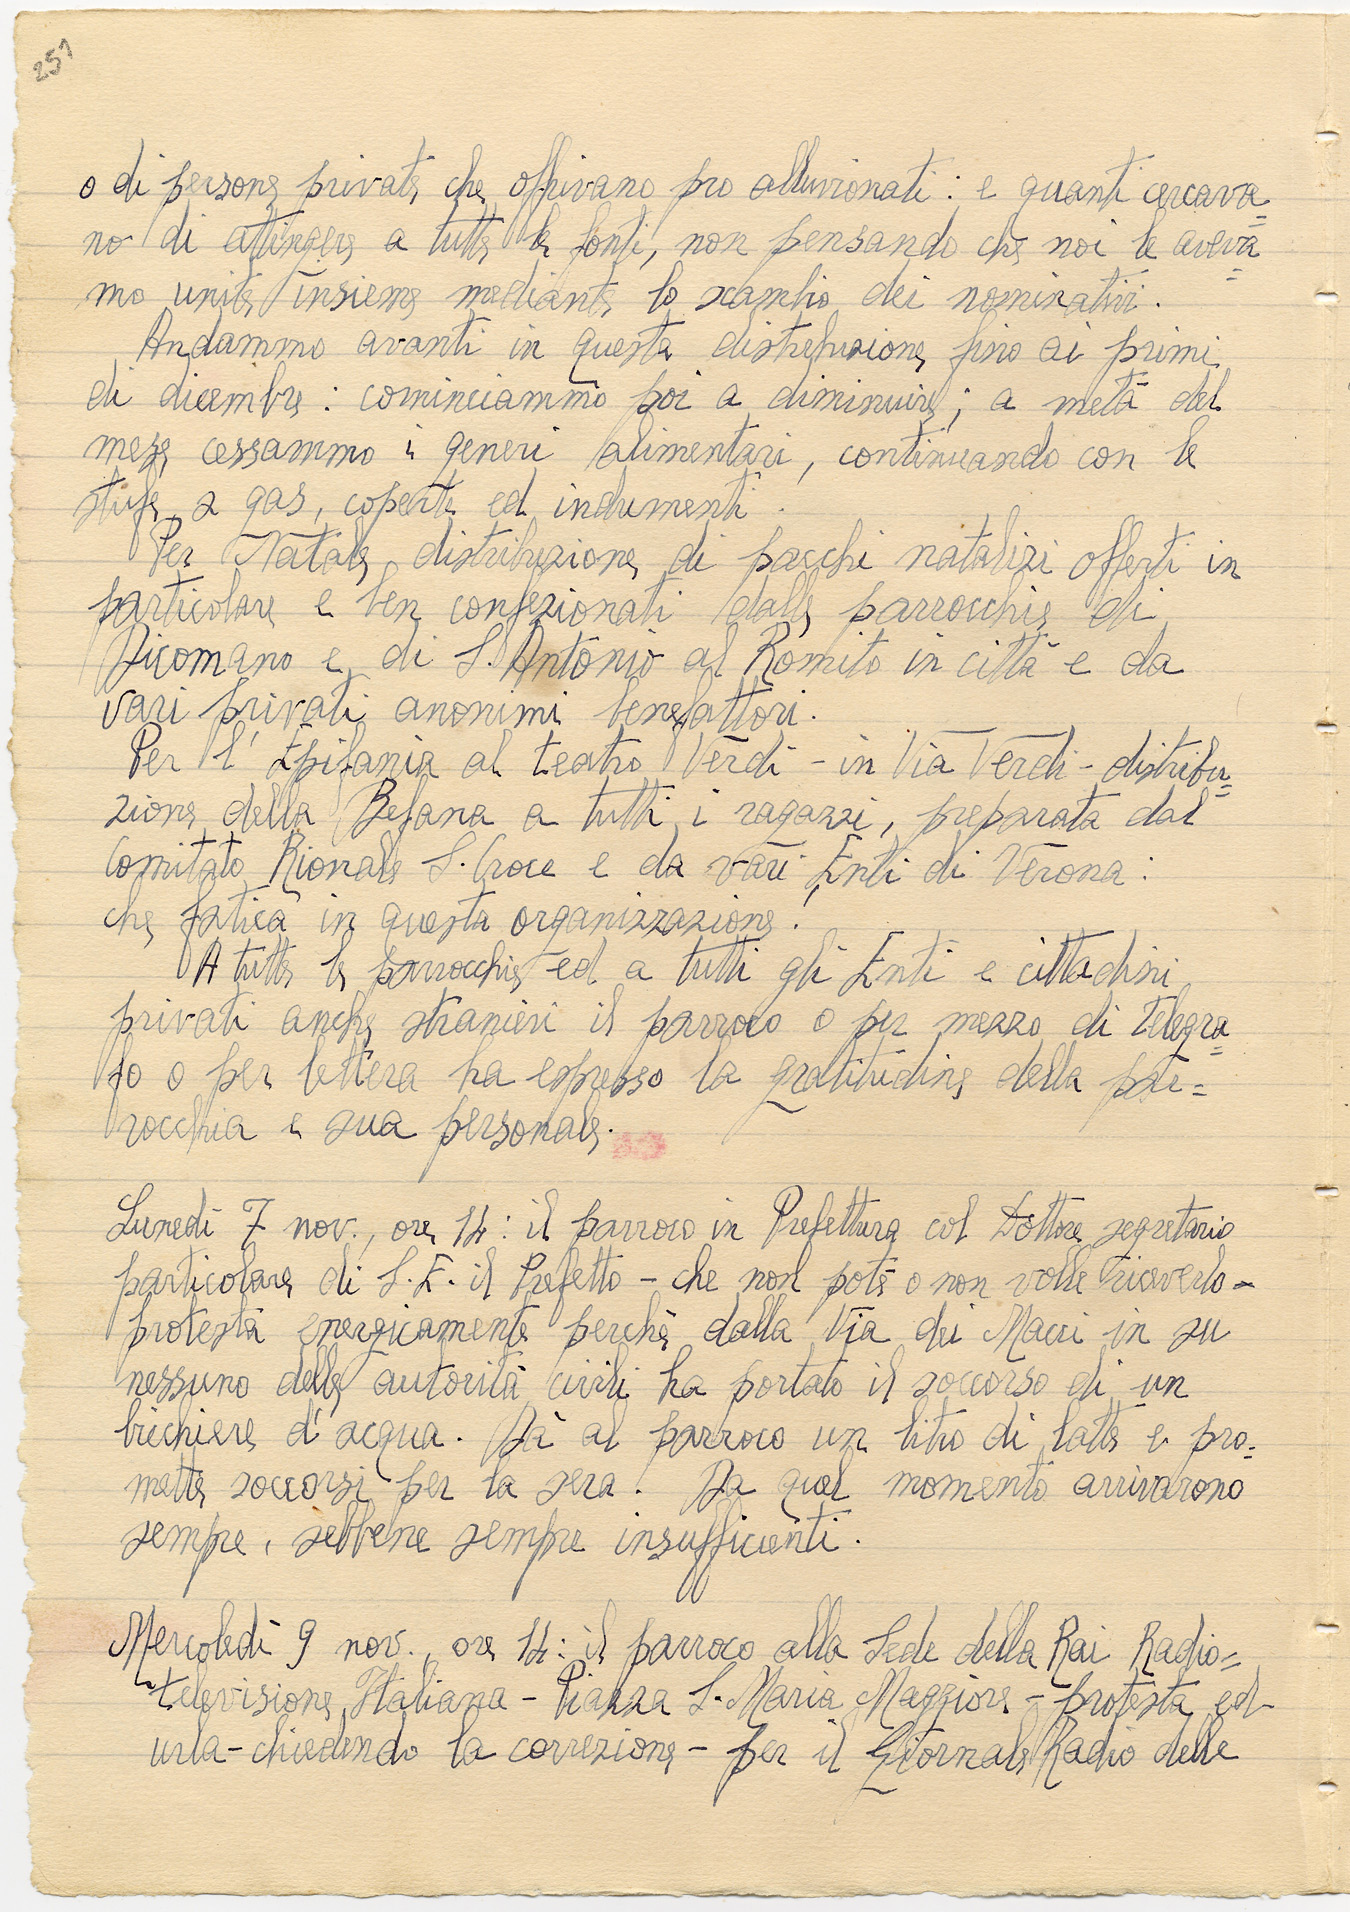 251
o di persone private che offrivano pro alluvionati: e quanti cercava=
no di attingere a tutte le fonti, non pensando che noi le aveva=
mo unite insieme mediante lo scambio dei nominativi.
Andammo avanti in questa distribuzione fino ai primi
di dicembre: cominciammo poi a diminuire; a metà del
mese cessammo i generi alimentari, continuando con le
stufe a gas, coperte ed indumenti.
Per Natale distribuzione di pacchi natalizi offerti in
particolare e ben confezionati dalle parrocchie di
Dicomano e di S. Antonio al Romito in città e da
vari privati anonimi benefattori.
Per l'Epifania al teatro Verdi - in Via Verdi - distribu=
zione della Befana a tutti i ragazzi, preparata dal
Comitato Rionale S. Croce e da vari Enti di Verona:
che fatica in questa organizzazione!
A tutte le parrocchie ed a tutti gli Enti e cittadini
privati anche stranieri il parroco o per mezzo di telegra=
fo o per lettera ha espresso la gratitudine della par=
rocchia e sua personale.
Lunedì 7 nov., ore 14: il parroco in Prefettura col Dottore segretario
particolare di S.E. il Prefetto - che non potè o non volle riceverlo -
protesta energicamente perchè dalla Via dei Macci in su
nessuno delle autorità civili ha portato il soccorso di un
bicchiere d'acqua. Dà al parroco un litro di latte e pro=
mette soccorsi per la sera. Da quel momento arrivarono
sempre, sebbene sempre insufficienti.
Mercoledì 9 nov., ore 14: il parroco alla Sede della Rai Radio=
televisione Italiana - Piazza S. Maria Maggiore - protesta ed
urla - chiedendo la correzione - per il Giornale Radio delle